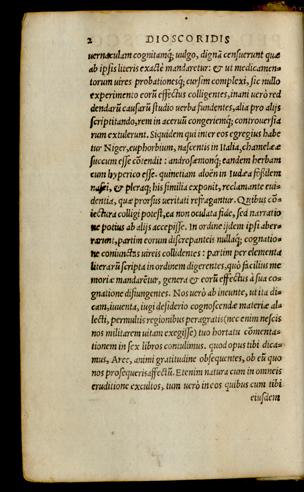 2 DIOSCORIDIS
uernaculam cognitamq́; uulgo, dignā censuerunt quæ
ab ipsis literis exactè mandaretur: & ut medicamen-
torum uires probationesq́; cursim complexi, sic nullo
experimento eorū effectus colligentes, inani uerò red
dendarū causarū studio uerba fundentes, alia pro alijs
scriptitando, rem in aceruū congeriemq́; controuersia
rum extulerunt. Siquidem qui inter eos egregius habe
tur Niger, euphorbium, nascentis in Italia, chamelææ
succum esse cōtendit: androsæmonq́; eandem herbam
cum hyperico esse. quinetiam aloën in Iudæa fossilem
nasci, & pleraq; his similia exponit, reclamante eui-
dentia, quæ prorsus veritati refragantur. Quibus cō-
iectura colligi potest, ea non oculata fide, sed narratio
ne potius ab alijs accepisse. In ordine ijdem ipsi aber-
rarunt, partim eorum discrepanteis nullaq́; cognatio-
ne coniunctas uireis collidentes: partim per elementa
literarū scripta in ordinem digerentes, quò facilius me
moriæ mandarētur, genera & eorū effectus à sua co-
gnatione disiungentes. Nos uerò ab ineunte, ut ita di-
cam, iuuenta, iugi desiderio cognoscendæ materiæ al-
lecti, permultis regionibus peragratis (nec enim nescis
nos militarem uitam exegisse) tuo hortatu cōmenta-
tionem in sex libros contulimus. quod opus tibi dica-
mus, Aree, animi gratitudine obsequentes, ob eū quo
nos prosequeris affectū. Etenim natura cum in omneis
eruditione excultos, tum uerò in eos quibus cum tibi
eiusdem